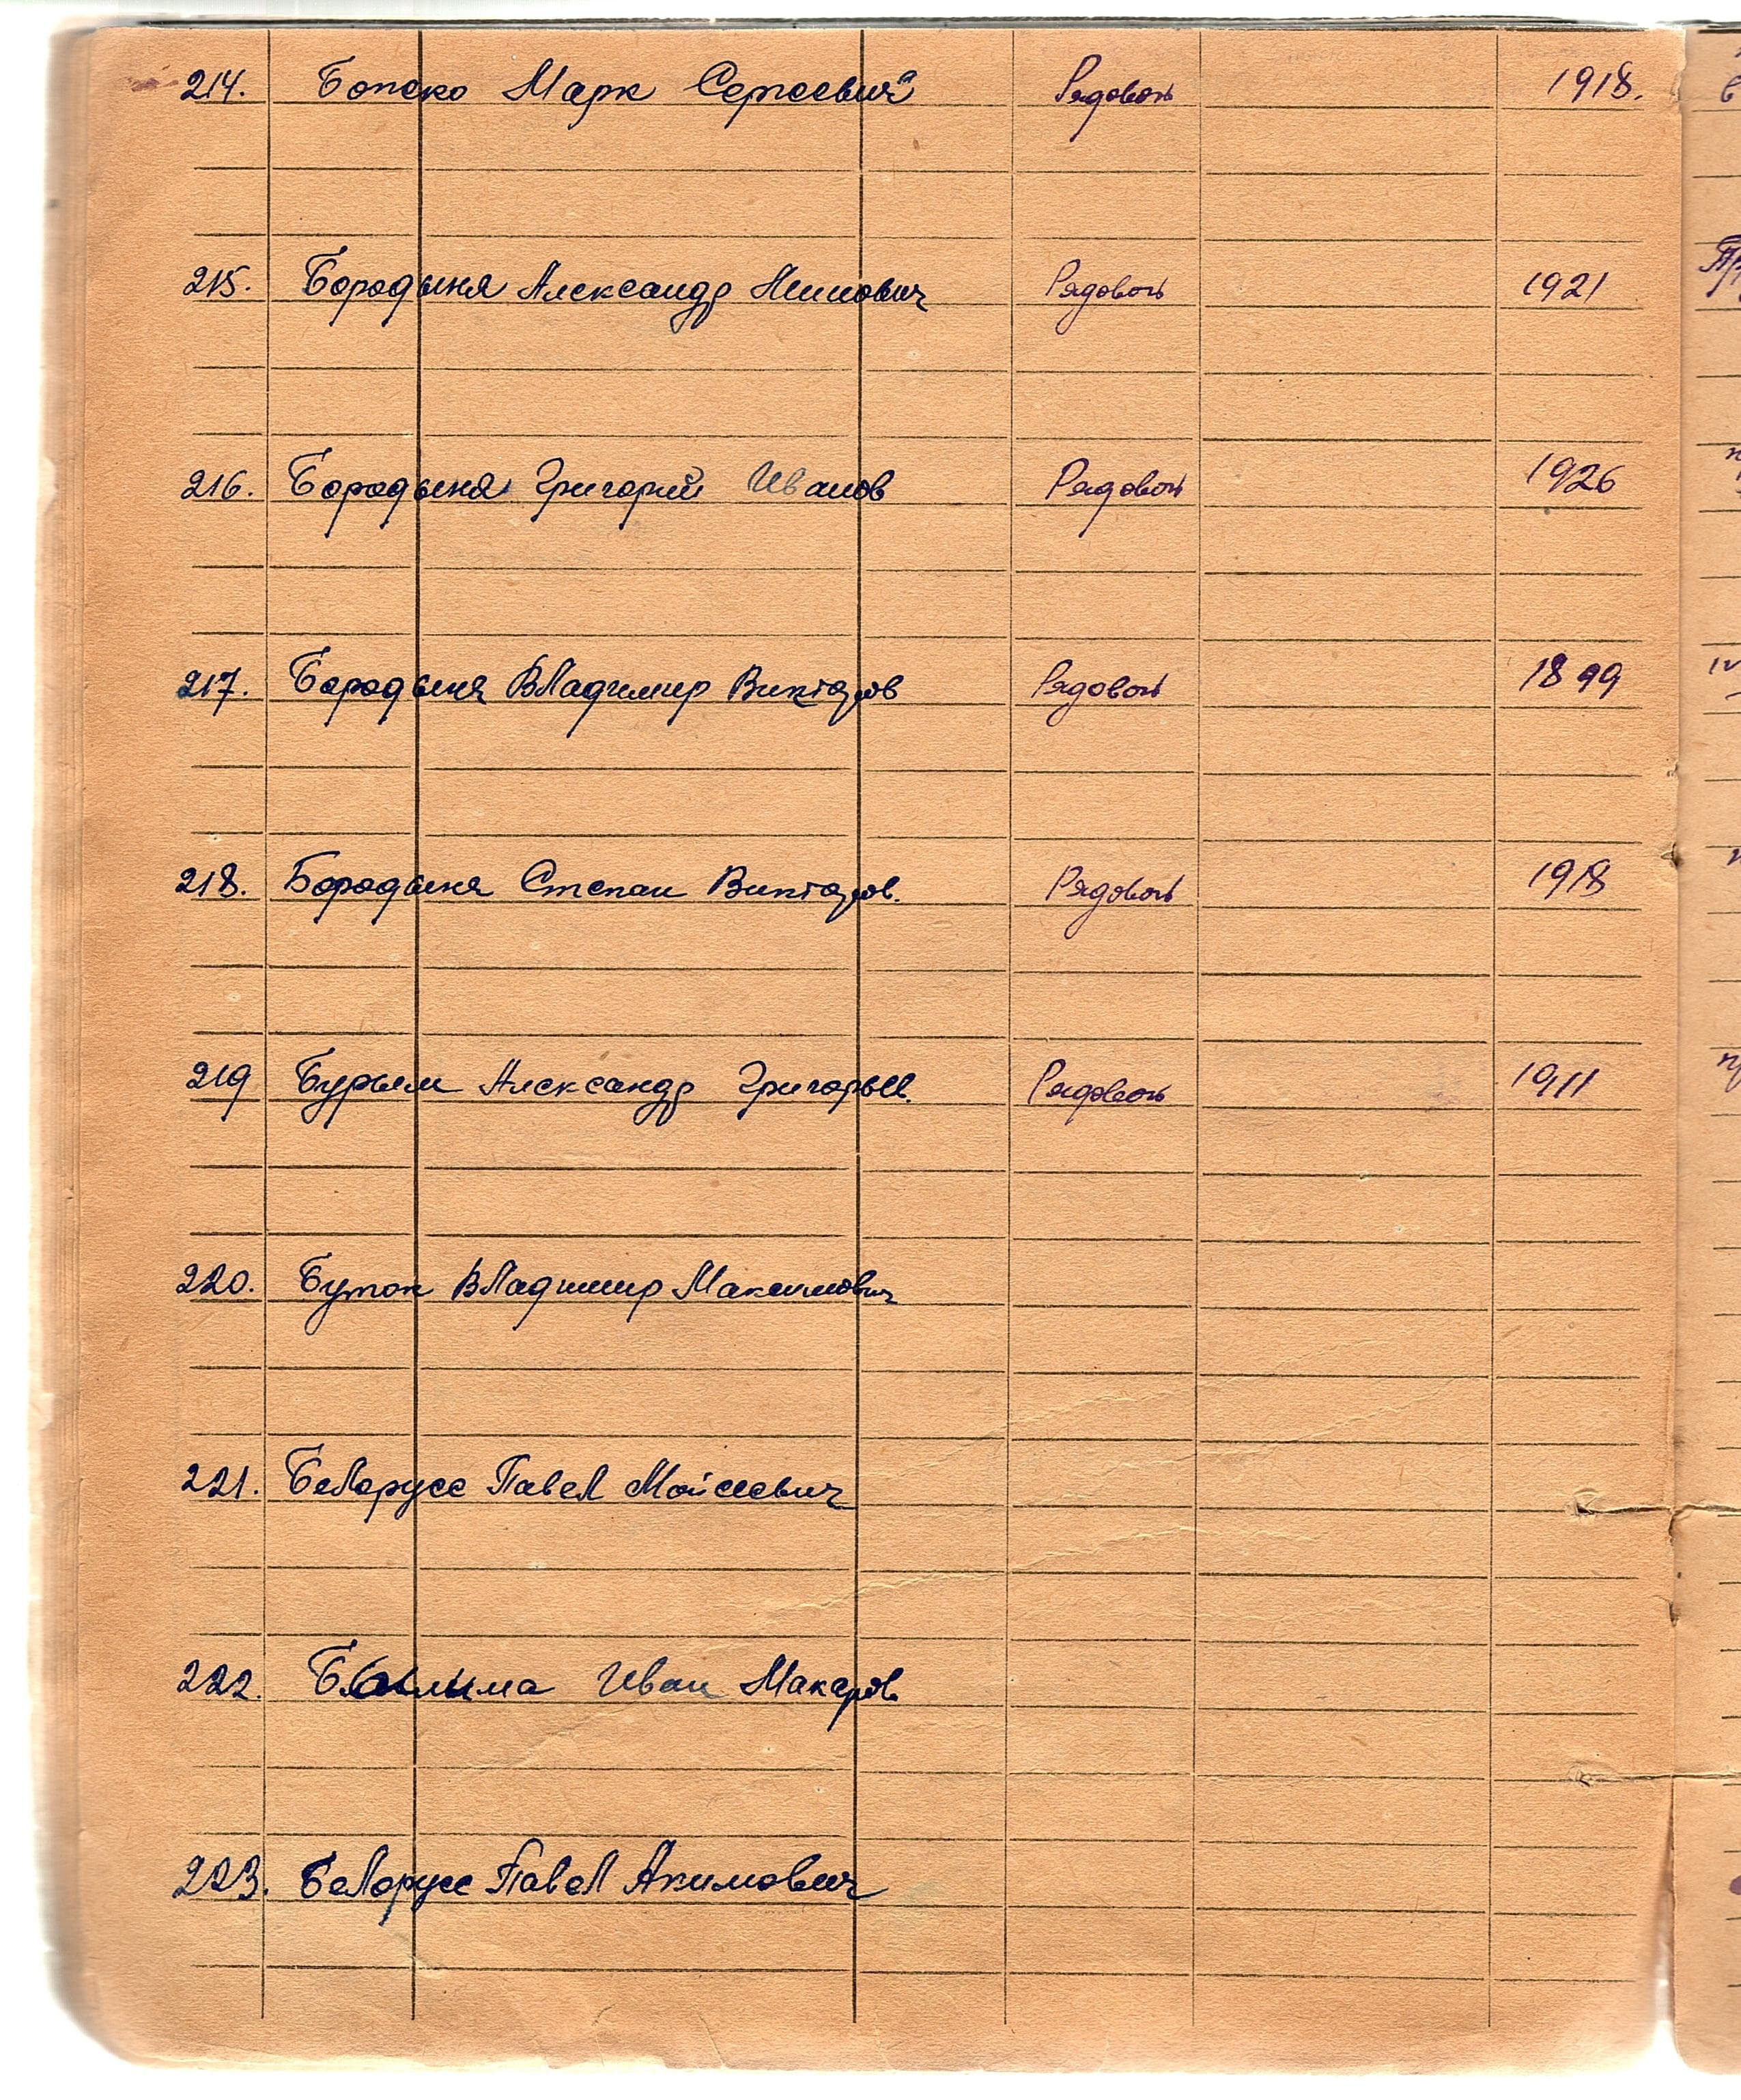 214. Бопско Марк Сергеевич Рядовой 1918.
215. Бородыня Александр Рядовой 1921
216. Бородыня Григорий Иванов Рядовой 1926
217. Бородыня Владимир Викторов Рядовой 1899
218. Бородыня Степан Викторов. Рядовой 1918
219 Бурым Александр Григорьев. Рядовой 1911
220. Буток Владимир Максимович
221. Белорусс Павел Мойсеевич
222. Иван Макаров.
223. Белорусс Павел Акимович